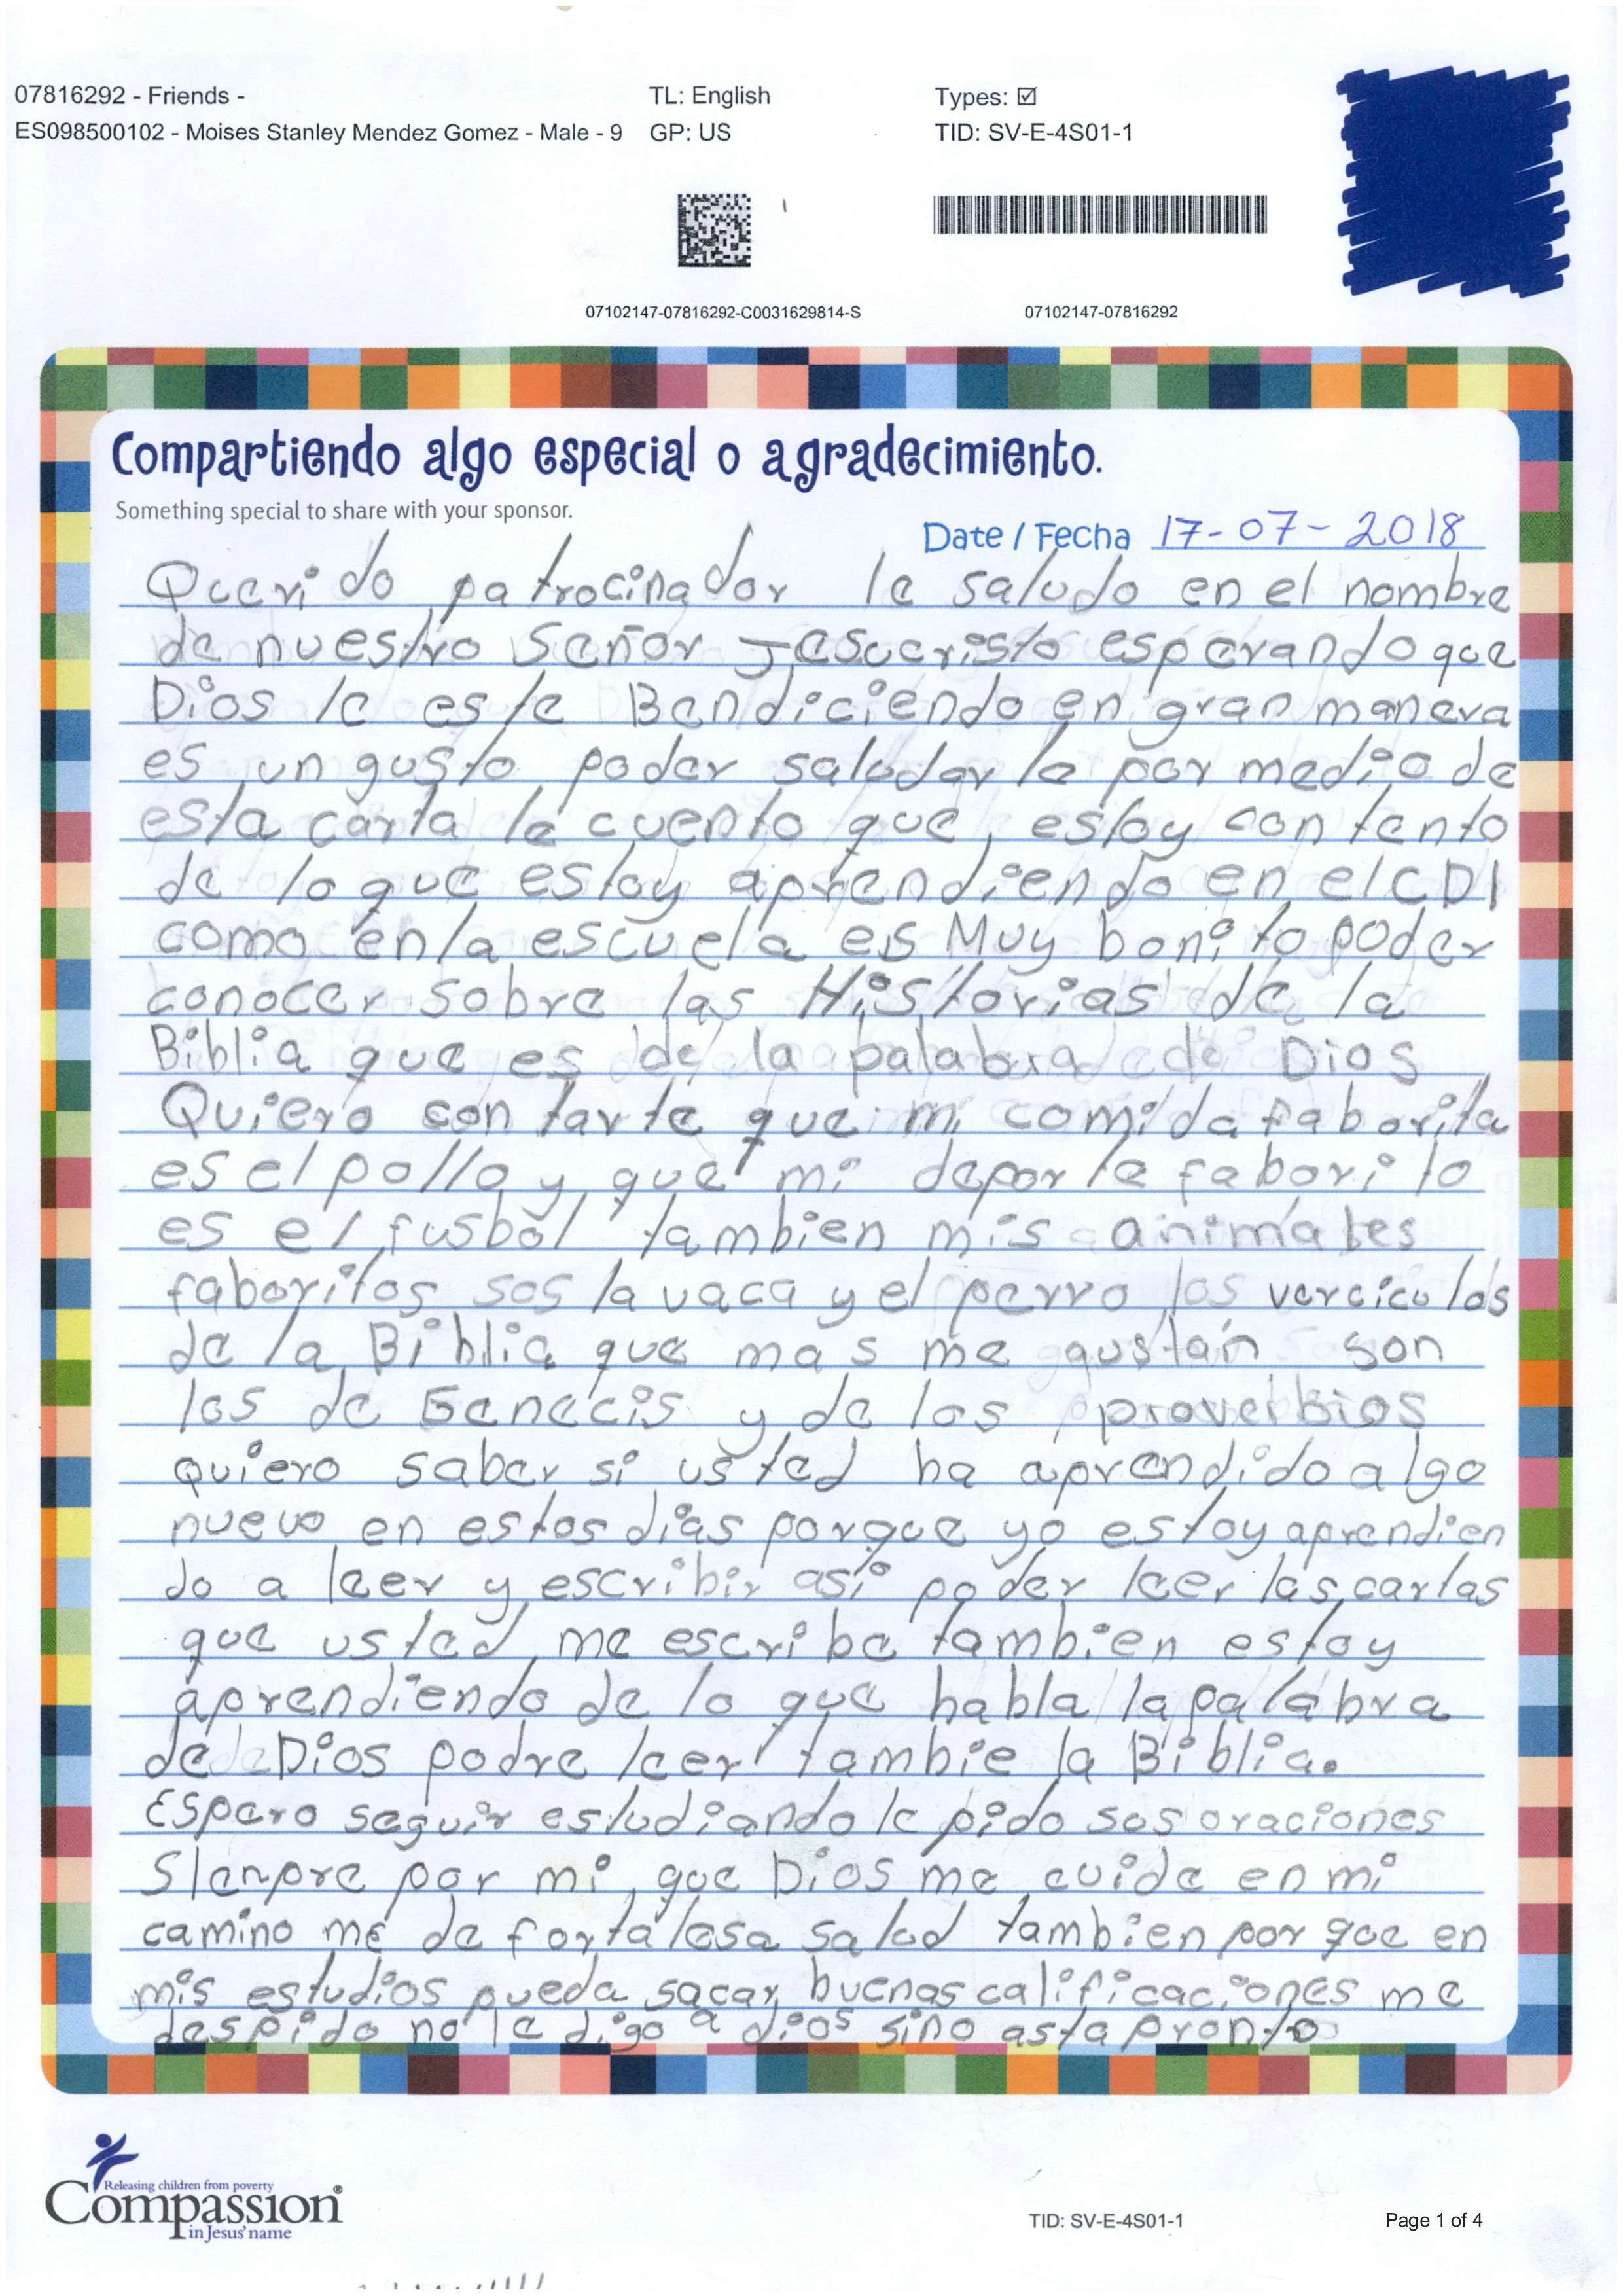 07816292 - Friends -
TL: English
Types: ☑
ES098500102 - Moises Stanley Mendez Gomez - Male - 9
GP: US
TID: SV-E-4S01-1
07102147-07816292-C0031629814-S
07102147-07816292
Compartiendo algo especial o agradecimiento.
Something special to share with your sponsor.
Date / Fecha 17-07-2018
Querido patrocinador le saludo en el nombre
de nuestro Señor Jesucristo esperando que
Dios le este Bendiciendo en gran manera
es un gusto poder saludarle por medio de
esta carta le cuento que estoy contento
de lo que estoy aprendiendo en el CDI
como en la escuela es Muy bonito poder
conocer sobre las Historias de la
Biblia que es de la palabra de Dios
Quiero contarte que mi comida faborita
es el pollo y que mi deporte faborito
es el fusbol tambien mis animales
faboritos sos la vaca y el perro los vercicu los
de la Biblia que mas me gustan son
los de Genecis y de los proverbios
quiero saber si usted ha aprendido algo
nuevo en estos dias porque yo estoy aprendien
do a leer y escribir asi poder leer las cartas
que usted me escribe tambien estoy
aprendiendo de lo que habla la palabra
de Dios podre leer tambie la Biblia.
Espero seguir estudiando le pido sus oraciones
Sienpre por mi, que Dios me cuide en mi
camino me de fortalesa salud tambien por que en
mis estudios pueda sacar buenas calificaciones me
despido no le digo a dios sino asta pronto
Releasing children from poverty
Compassion®
in Jesus' name
TID: SV-E-4S01-1
Page 1 of 4